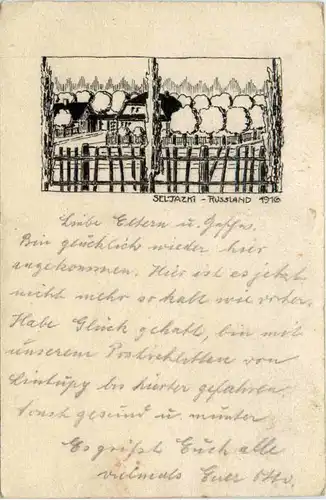 SELJAZKI - RUSSLAND 1916
Liebe Eltern u.
Bin glücklich wieder hier
angekommen. Hier ist es jetzt
nicht mehr so kalt wie vorher.
Habe Glück gehabt, bin mit
unserem Postschlitten von
Lintupy bis hierher gefahren.
sonst gesund u. munter
Es grüßt Euch alle
vielmals Euer Otto.